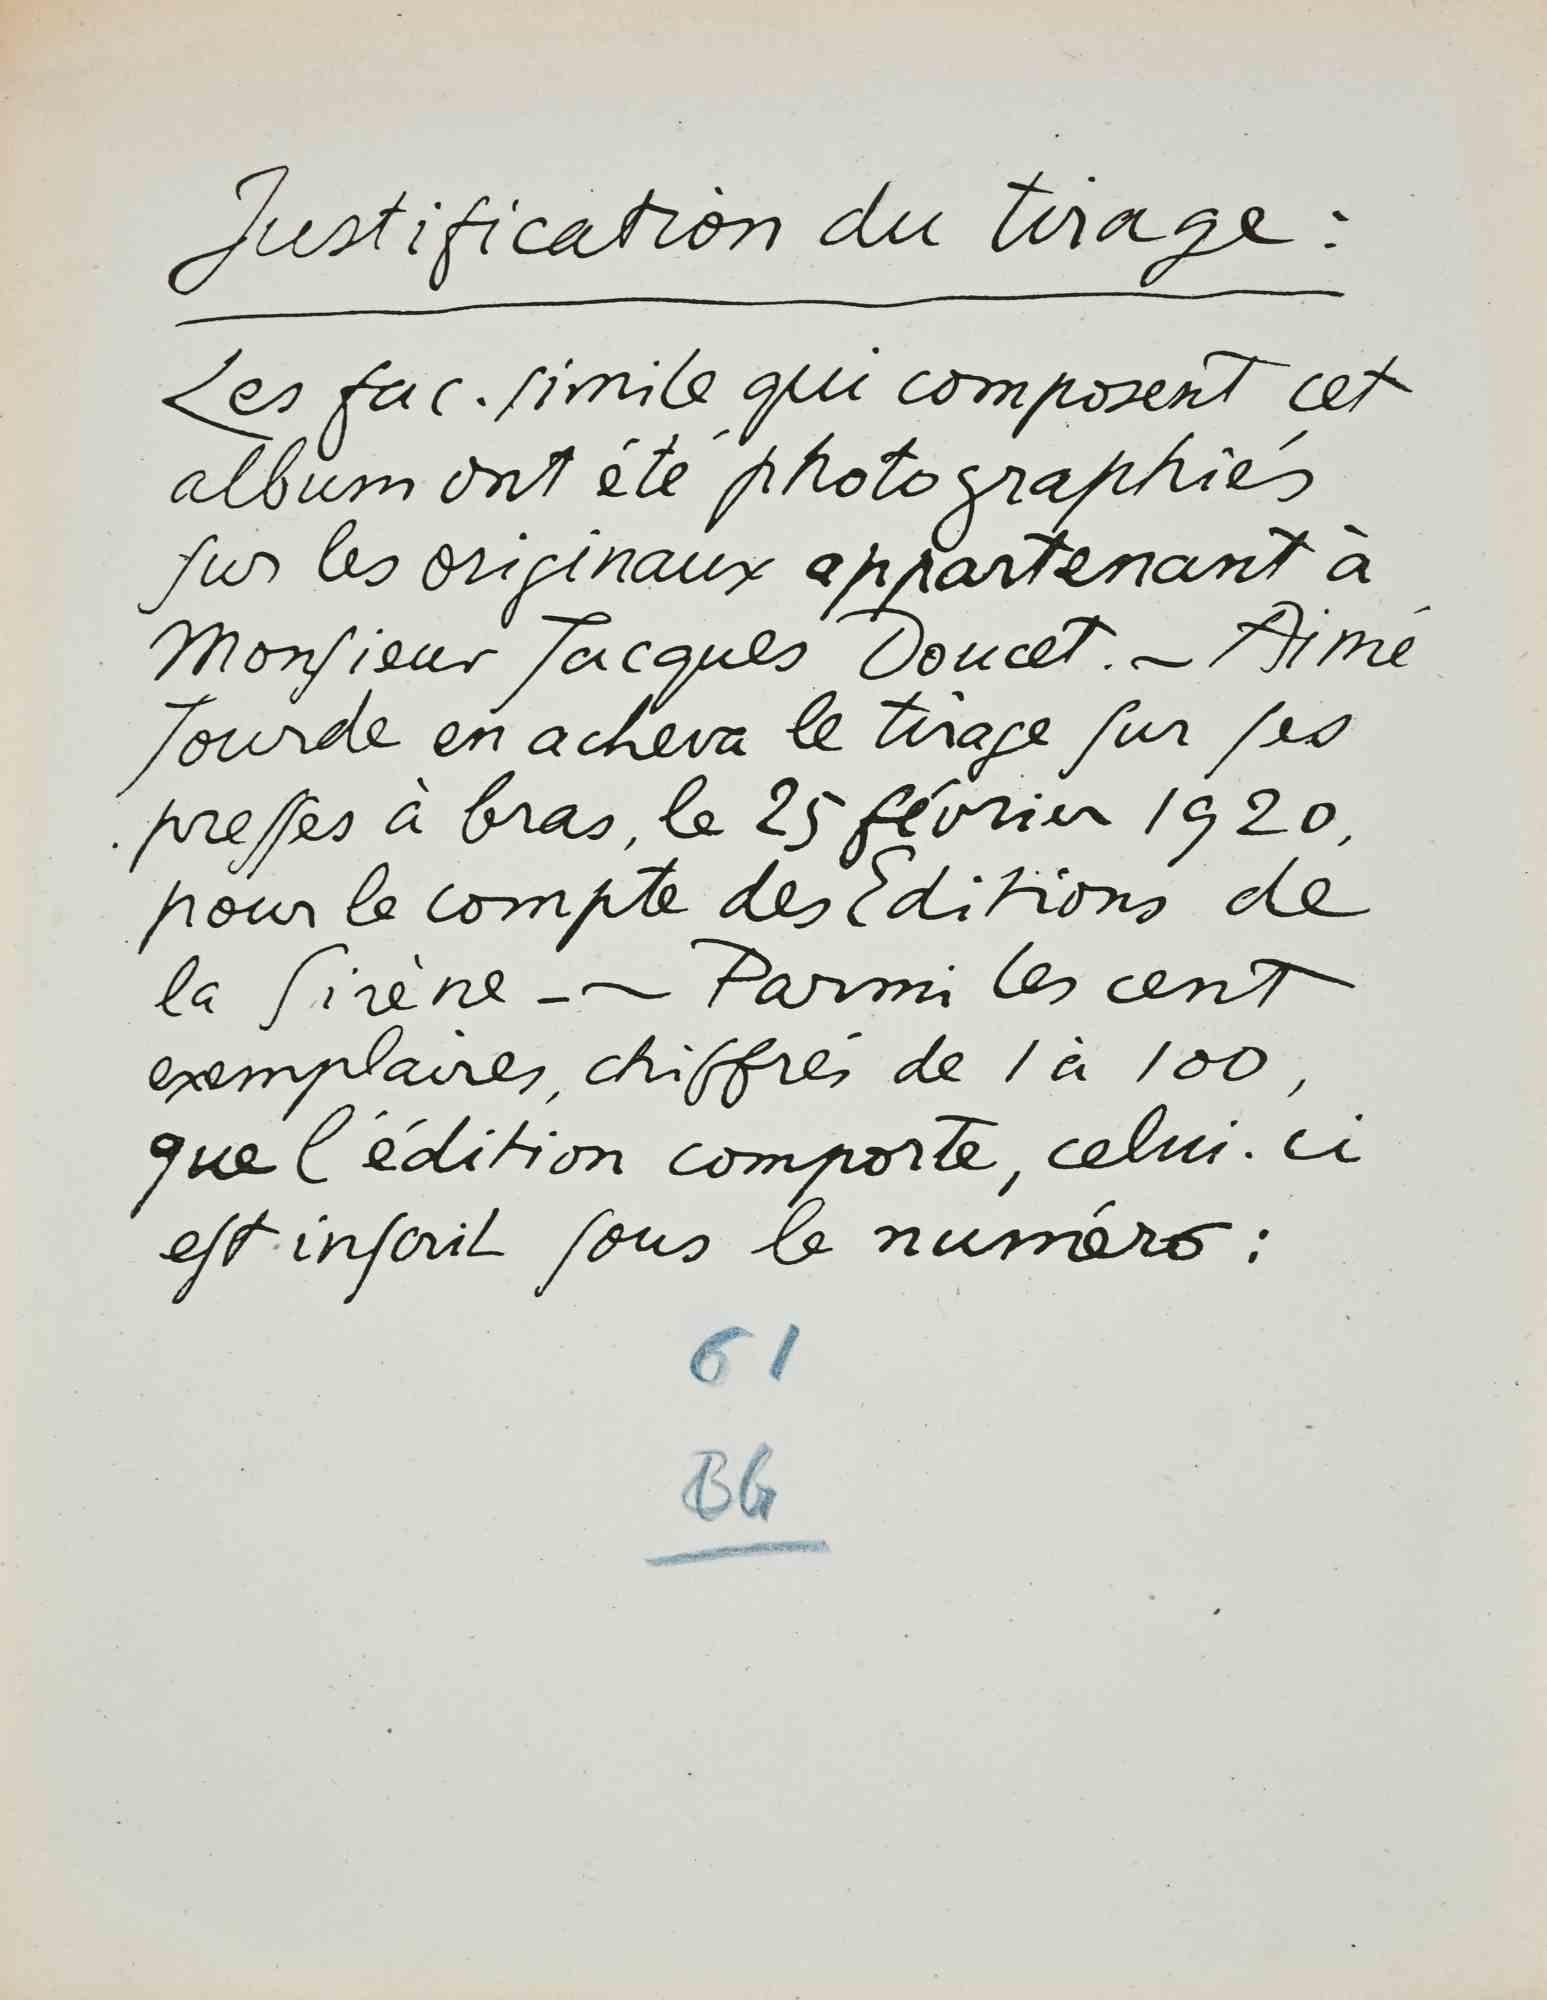 Justification du tirage :
Les fac-simile qui composent cet
album ont été photographiés
sur les originaux appartenant à
Monsieur Jacques Doucet. — Aimé
Jourde en acheva le tirage sur ses
presses à bras, le 25 février 1920,
pour le compte des Editions de
la Sirène - — Parmi les cent
exemplaires, chiffrés de 1 à 100,
que l'édition comporte, celui-ci
est inscrit sous le numéro :
61
BG